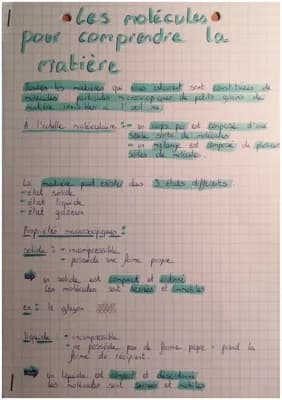 Les molécules
pour comprendre la
matière
Toutes les matières qui nous entourent sont constituées de
molécules particules microscopiques de petits grains de
matière invisibles à l'œil nu
A l'échelle moléculaire : - un corps pur est composé d'une
seule sorte de molécules
- un mélange est composé de plusieurs
sortes de molécules.
La matière peut exister dans 3 états différents :
- état solide
- état liquide
- état gazeux
Propriétés macroscopiques :
solide : - incompressible
- possède une forme propre
un solide est compact et ordonné
les molécules sont serrées et immobiles
ex : le glaçon
liquide : - incompressible
- ne possède pas de forme propre - prend la
forme du récipient.
un liquide est compact et désordonné
les molécules sont serrées et mobiles